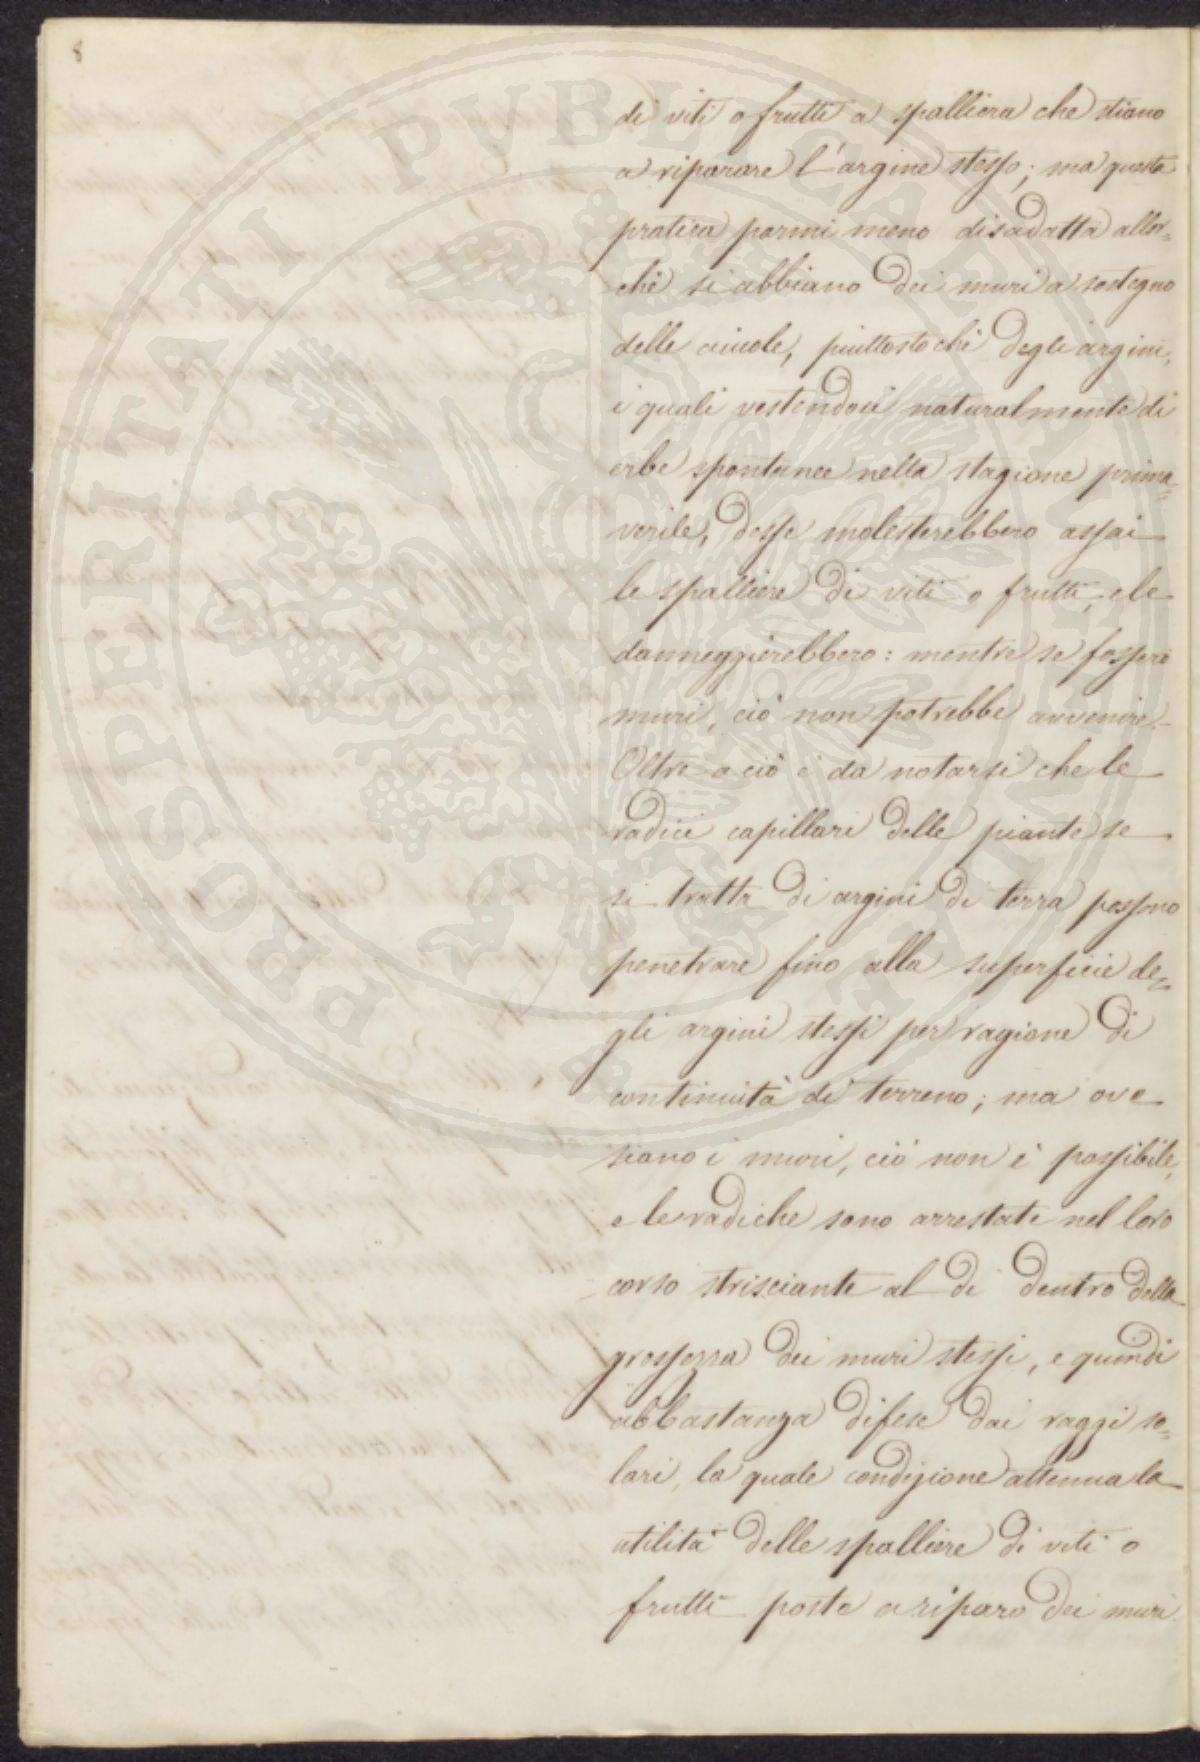 8
di viti o frutti a spalliera che stiano
a riparare l'argine stesso; ma questa
pratica parmi meno disadatta allor=
chè si abbiano dei muri a sostegno
delle aiuole, piuttosto che degli argini,
i quali vestendosi naturalmente di
erbe spontanee nella stagione prima=
verile, desse molesterebbero assai
le spalliere di viti o frutti, e le
danneggierebbero: mentre se fossero
muri, ciò non potrebbe avvenire.
Oltre a ciò è da notarsi che le
radici capillari delle piante se
si tratta di argini di terra possono
penetrare fino alla superficie de=
gli argini stessi per ragione di
continuità di terreno; ma ove
siano i muri, ciò non è possibile,
e le radiche sono arrestate nel loro
corso strisciante al di dentro della
grossezza dei muri stessi, e quindi
abbastanza difese dai raggi so=
lari, la quale condizione attenua la
utilità delle spalliere di viti o
frutti poste a riparo dei muri.
PROSPERITATI PVBLICAE